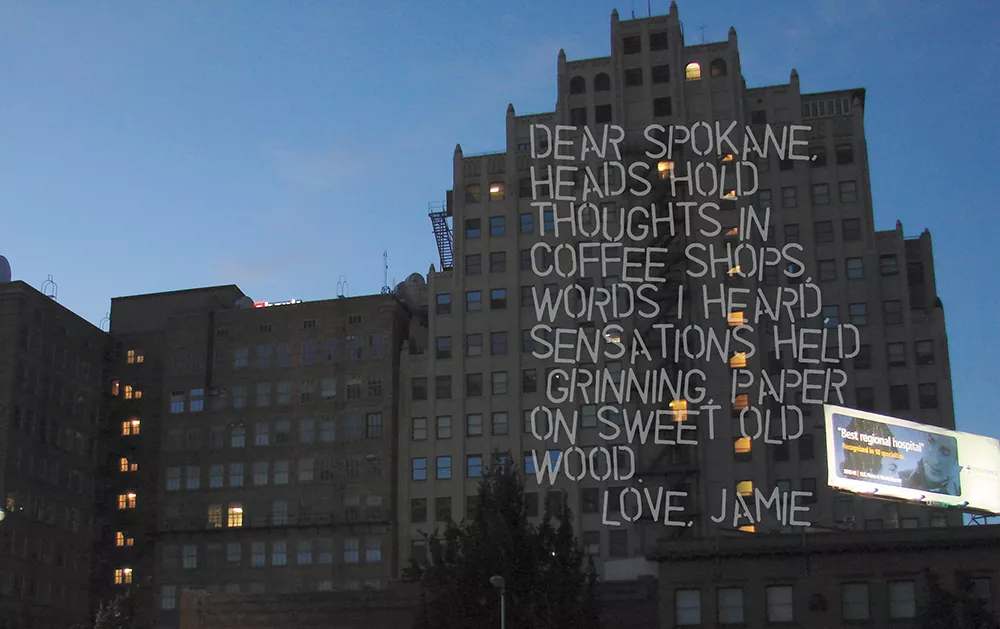 DEAR SPOKANE,
HEADS HOLD
THOUGHTS IN
COFFEE SHOPS,
WORDS I HEARD
SENSATIONS HELD
GRINNING, PAPER
ON SWEET OLD
WOOD.
LOVE, JAMIE
"Best regional hospital"
Recognized in 10 specialties